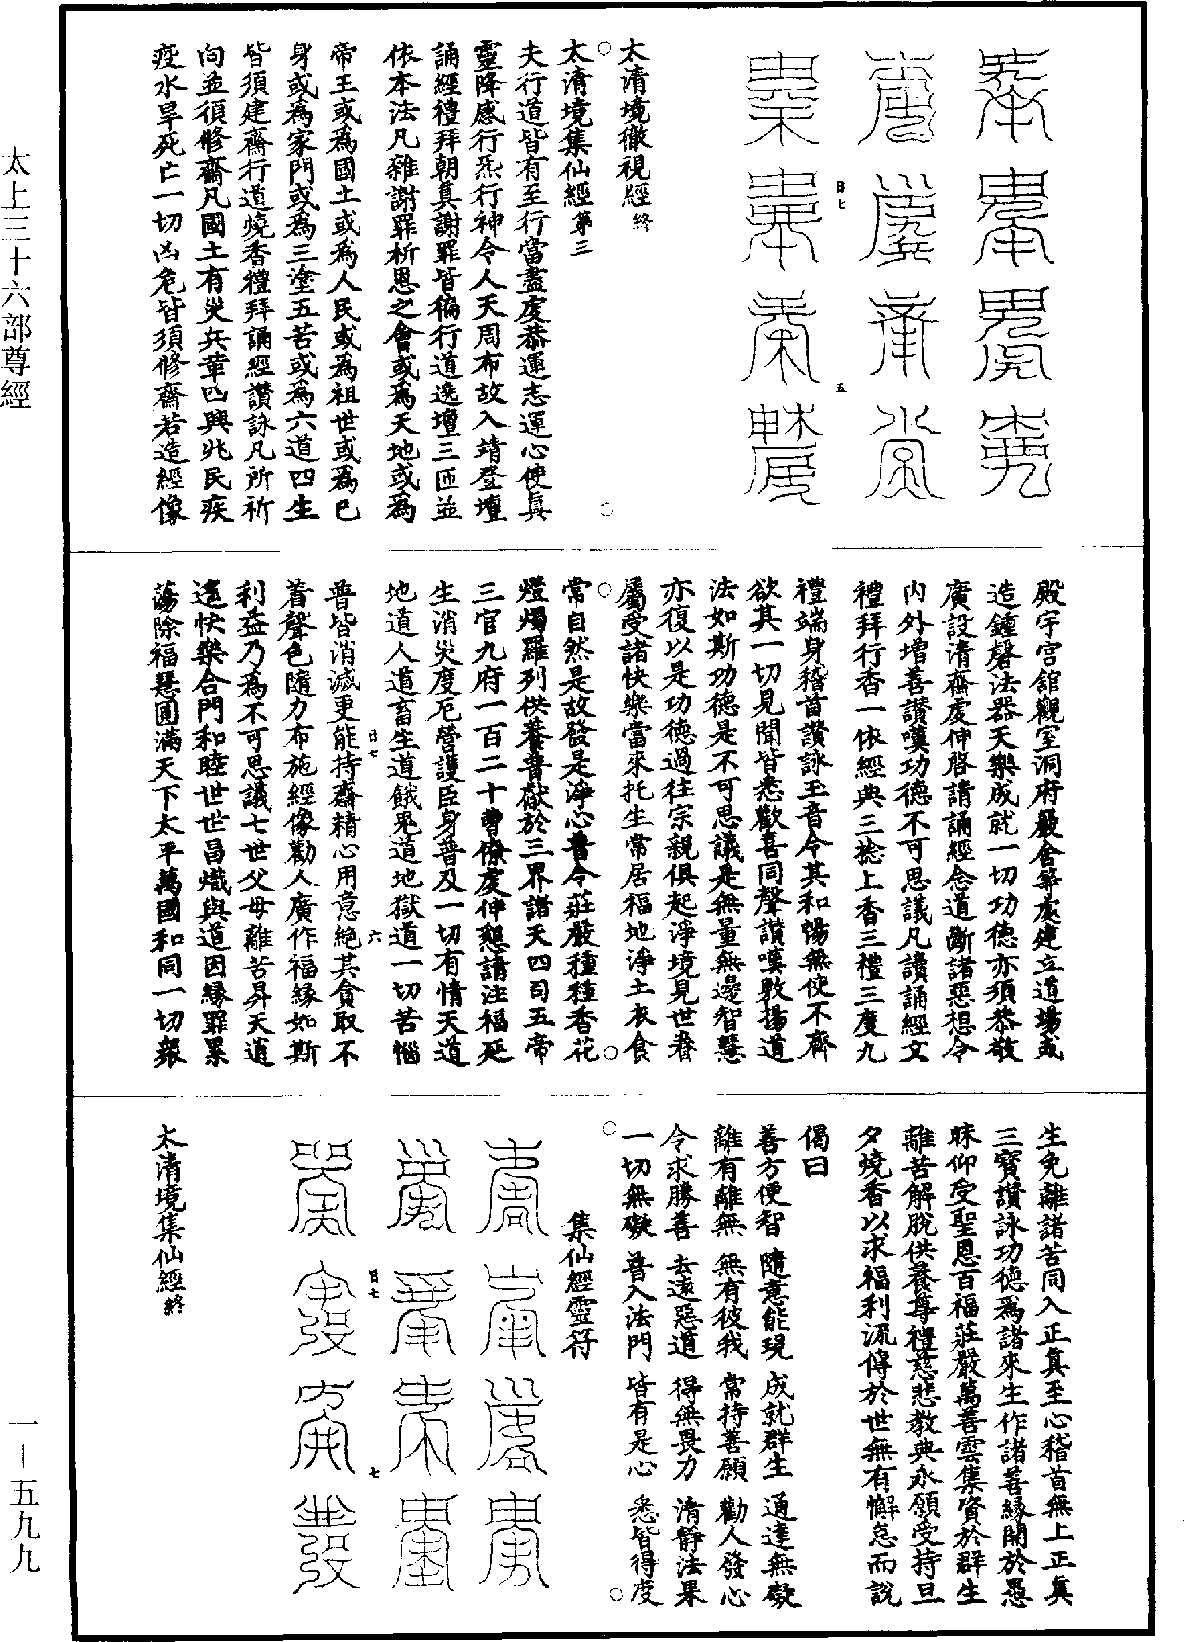 太上三十六部尊經
太清境徹視經終
太清境集仙經第三
夫行道皆有至行當盡虔恭運志運心使真
靈降感行炁行神令人天周布故入靖登壇
誦經禮拜朝真謝罪皆徧行道遶壇三匝並
依本法凡雜謝罪祈恩之會或為天地或為
帝王或為國土或為人民或為祖世或為己
身或為家門或為三塗五苦或為六道四生
皆須建齋行道燒香禮拜誦經讚詠凡所祈
向並須修齋凡國土有災兵革四興兆民疾
疫水旱死亡一切凶危皆須修齋若造經像
殿宇宮舘觀室洞府嚴舍等處建立道場或
造鍾磬法器天樂成就一切功德亦須恭敬
廣設清齋虔伸啓請誦經念道斷諸惡想令
內外增善讚嘆功德不可思議凡讀誦經文
禮拜行香一依經典三捻上香三禮三度九
禮端身稽首讚詠玉音令其和暢無使不齊
欲其一切見聞皆悉歡喜同聲讚嘆敷揚道
法如斯功德是不可思議是無量無邊智慧
亦復以是功德過往宗親俱起淨境見世眷
屬受諸快樂當來托生常居福地淨土衣食
常自然是故發是淨心普令莊嚴種種香花
燈燭羅列供養普獻於三界諸天四司五帝
三官九府一百二十曹僚虔伸懇請注福延
生消災度厄營護臣身普及一切有情天道
地道人道畜生道餓鬼道地獄道一切苦惱
普皆消滅更能持齋精心用意絕其貪取不
着聲色隨力布施經像勸人廣作福緣如斯
利益乃為不可思議七世父母離苦昇天逍
遙快樂合門和睦世世昌熾與道因緣罪累
蕩除福慧圓滿天下太平萬國和同一切報
生免離諸苦同入正真至心稽首無上正真
三寶讚詠功德為諸來生作諸善緣開於愚
昧仰受聖恩百福莊嚴萬善雲集資於群生
離苦解脫供養尊禮慈悲教典永願受持旦
夕燒香以求福利流傳於世無有懈怠而說
偈曰
善方便智 隨意能現 成就群生 通達無礙
離有離無 無有彼我 常持善願 勸人發心
令求勝善 去遠惡道 得無畏力 清靜法果
一切無礙 普入法門 皆有是心 悉皆得度
集仙經靈符
太清境集仙經終
一—五九九